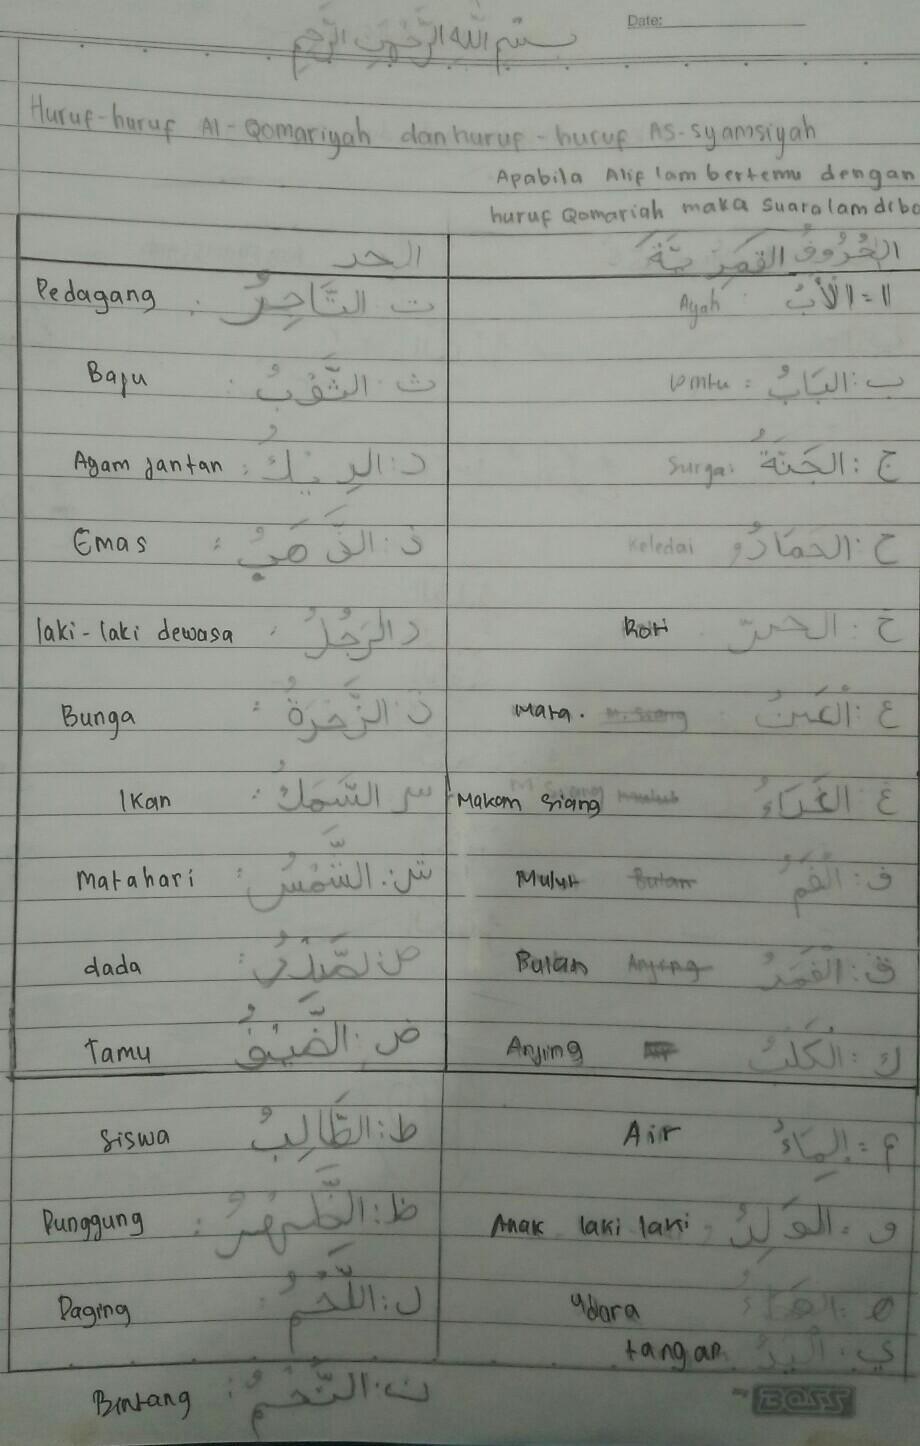 Date:
بسم الله الرحمن الرحيم
Huruf-huruf Al-Qomariyah dan huruf-huruf AS-syamsiyah
Apabila Alif lam bertemu dengan
huruf Qomariah maka suara lam diba
الحُرُوفُ القَمَرِيَّةَ الحد
ا = اَلْأَبُ : Ayah ت التَّاجِرُ : Pedagang
ب : البَابُ : ت : الثَّوْبُ : Baju
ج : الجَنَّةُ : Surga د : الدِيكُ : Ayam Jantan
ح : الحمَارُ Keledai ذ : الذَّهَبُ : Emas
خ : Roti ر الرَجُلُ : laki-laki dewasa
ع : العَينُ Mata. ز : الزَّهرَةُ : Bunga
غ : Makan Siang س السَّمَكُ : Ikan
ف : الفَمُ Mulut Bulan ش : الشَّمْسُ : Matahari
ق : القَمَرُ Bulan Anjing ص : dada
ك : الكَلبُ Anjing ض : الضَّيْفُ Tamu
م : المَاءُ Air ط : الطَّالِبُ Siswa
و : الوَلَدُ : Anak laki laki ظ : الظَّهرُ : Punggung
ه : udara ل : اللَّحْمُ : Daging
ي : اليَدُ tangan
ن : النَّجْمُ : Bintang
BOSS